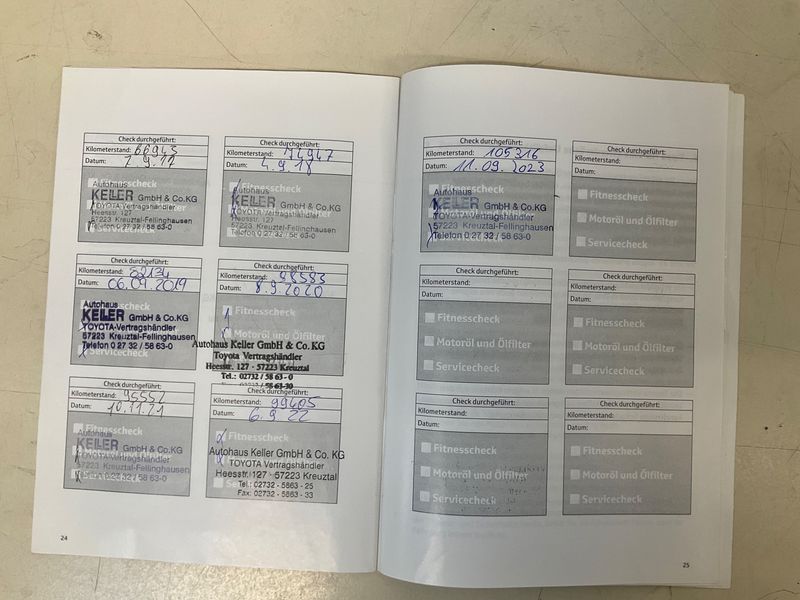 Check durchgeführt:
Kilometerstand: 66943
Datum:
Fitnesscheck
Autohaus
KELLER GmbH & Co.KG
TOYOTA-Vertragshändler
Heesstr. 127
57223 Kreuztal-Fellinghausen
Telefon 0 27 32 / 58 63-0
Check durchgeführt:
Kilometerstand: 74947
Datum: 4.9.18
Fitnesscheck
Autohaus
KELLER GmbH & Co.KG
TOYOTA-Vertragshändler
Heesstr. 127
57223 Kreuztal-Fellinghausen
Telefon 0 27 32 / 58 63-0
Check durchgeführt:
Kilometerstand: 82134
Datum: 06.09.2019
Autohaus
KELLER GmbH & Co.KG
TOYOTA-Vertragshändler
57223 Kreuztal-Fellinghausen
Telefon 0 27 32 / 58 63-0
Check durchgeführt:
Kilometerstand: 88583
Datum: 8.9.2020
Fitnesscheck
Motoröl und Ölfilter
Autohaus Keller GmbH & Co. KG
Toyota Vertragshändler
Heesstr. 127 · 57223 Kreuztal
Tel.: 02732 / 58 63 - 0
58 63-30
Check durchgeführt:
Kilometerstand: 95552
Datum: 10.11.21
Fitnesscheck
Autohaus
KELLER GmbH & Co.KG
TOYOTA-Vertragshändler
Heesstr. 127
57223 Kreuztal-Fellinghausen
Telefon 0 27 32 / 58 63-0
Check durchgeführt:
Kilometerstand: 99405
Datum: 6.9.22
Fitnesscheck
Autohaus Keller GmbH & Co. KG
TOYOTA Vertragshändler
Heesstr. 127 · 57223 Kreuztal
Tel.: 02732 - 5863 - 25
Fax: 02732 - 5863 - 33
24
Check durchgeführt:
Kilometerstand: 105316
Datum: 11.09.2023
Fitnesscheck
Autohaus
KELLER GmbH & Co.KG
TOYOTA-Vertragshändler
Heesstr. 127
57223 Kreuztal-Fellinghausen
Telefon 0 27 32 / 58 63-0
Check durchgeführt:
Kilometerstand:
Datum:
Fitnesscheck
Motoröl und Ölfilter
Servicecheck
Check durchgeführt:
Kilometerstand:
Datum:
Fitnesscheck
Motoröl und Ölfilter
Servicecheck
Check durchgeführt:
Kilometerstand:
Datum:
Fitnesscheck
Motoröl und Ölfilter
Servicecheck
Check durchgeführt:
Kilometerstand:
Datum:
Fitnesscheck
Motoröl und Ölfilter
Servicecheck
Check durchgeführt:
Kilometerstand:
Datum:
Fitnesscheck
Motoröl und Ölfilter
Servicecheck
25